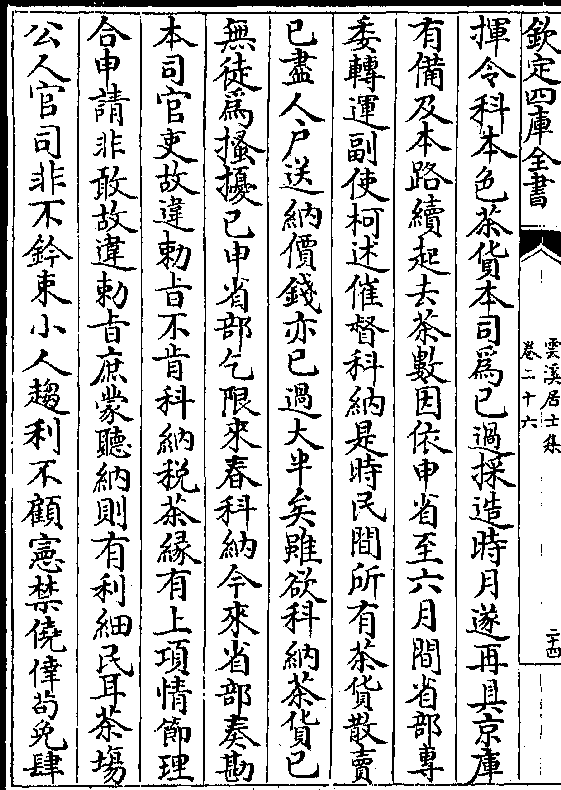 欽定四庫全書
雲溪居士集
卷二十六
二十四
揮令科本色茶貨本司爲已過採造時月遂再具京庫
有備及本路續起去茶數因依申省至六月間省部專
委轉運副使柯述催督科納是時民間所有茶貨散賣
已盡人户送納價錢亦已過大半矣雖欲科納茶貨已
無徒爲搔擾已申省部乞限來春科納今來省部奏勘
本司官吏故違勅㫖不肯科納税茶緣有上項情節理
合申請非敢故違勅㫖庶蒙聽納則有利細民耳茶塲
公人官司非不鈐束小人趨利不顧憲禁僥倖茍免肆